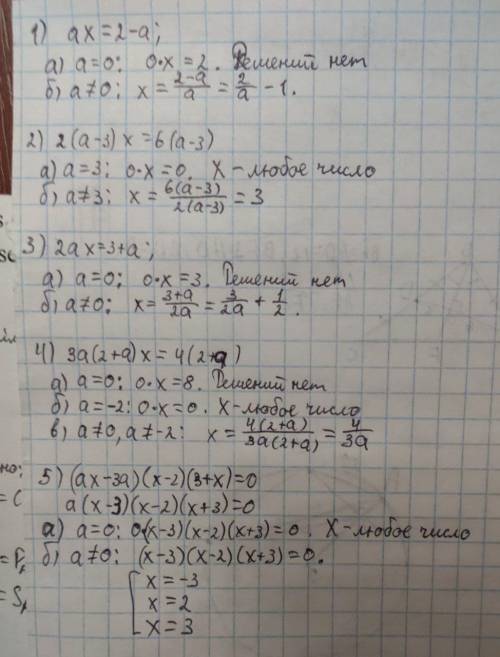 1) ax=2-a;
а) a=0: 0·x=2. Решений нет
б) a≠0: x=\frac{2-a}{a}=\frac{2}{a}-1.
2) 2(a-3)x=6(a-3)
а) a=3: 0·x=0. X-любое число
б) a≠3: x=\frac{6(a-3)}{2(a-3)}=3
3) 2ax=3+a;
а) a=0: 0·x=3. Решений нет
б) a≠0: x=\frac{3+a}{2a}=\frac{3}{2a}+\frac{1}{2}.
4) 3a(2+a)x=4(2+a)
а) a=0: 0·x=8. Решений нет
б) a=-2: 0·x=0. X-любое число
в) a≠0, a≠-2: x=\frac{4(2+a)}{3a(2+a)}=\frac{4}{3a}
5) (ax-3a)(x-2)(3+x)=0
a(x-3)(x-2)(x+3)=0
а) a=0: 0·(x-3)(x-2)(x+3)=0. X-любое число
б) a≠0: (x-3)(x-2)(x+3)=0.
[x=-3
x=2
x=3